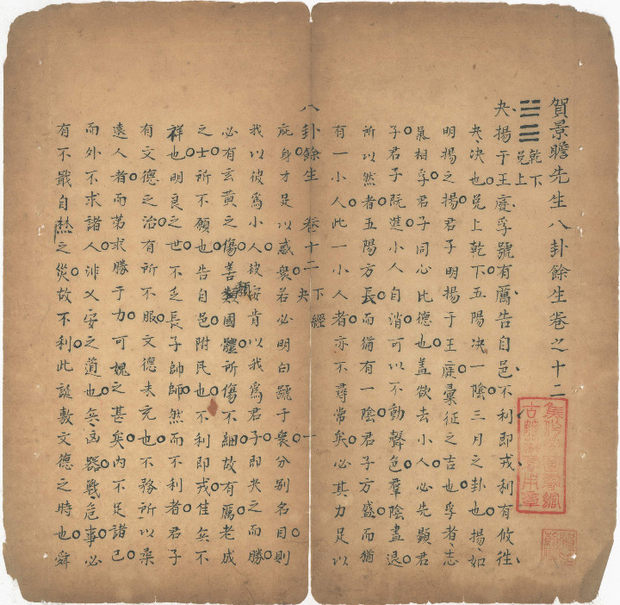 賀景瞻先生八卦餘生卷之十二
乾下
兌上
夬揚于王庭孚號有厲告自邑不利即戎利有攸往
夬決也兌上乾下五陽決一陰三月之卦也揚如
明揚之揚君子明揚于王庭彙征之吉也孚者志
氣相孚君子同心比德也蓋欲去小人必先顯君
子君子既進小人自消可以不動聲色羣陰盡退
所以然者五陽方長而猶有一陰君子方盛而猶
有一小人此一小人者亦不尋常矣必其力足以
八卦餘生 卷十二 下經 夬 一
庇身才足以惑衆若必明白顯于衆分別名目則
我以彼為小人彼安肯以我為君子即夬之而勝
必有玄黄之傷善類國體所傷不細故有厲老成
之士所不願也告自邑附民也不利即戎佳兵不
祥也明良之世不乏長子帥師然而不利者君子
有文德之治有所不服文德未充也不務所以柔
遠人者而苐求勝于力可媿之甚矣內不足諸己
而外不求諸人非乂安之道也兵凶器戰危事必
有不戢自焚之災故不利此誕敷文德之時也舜